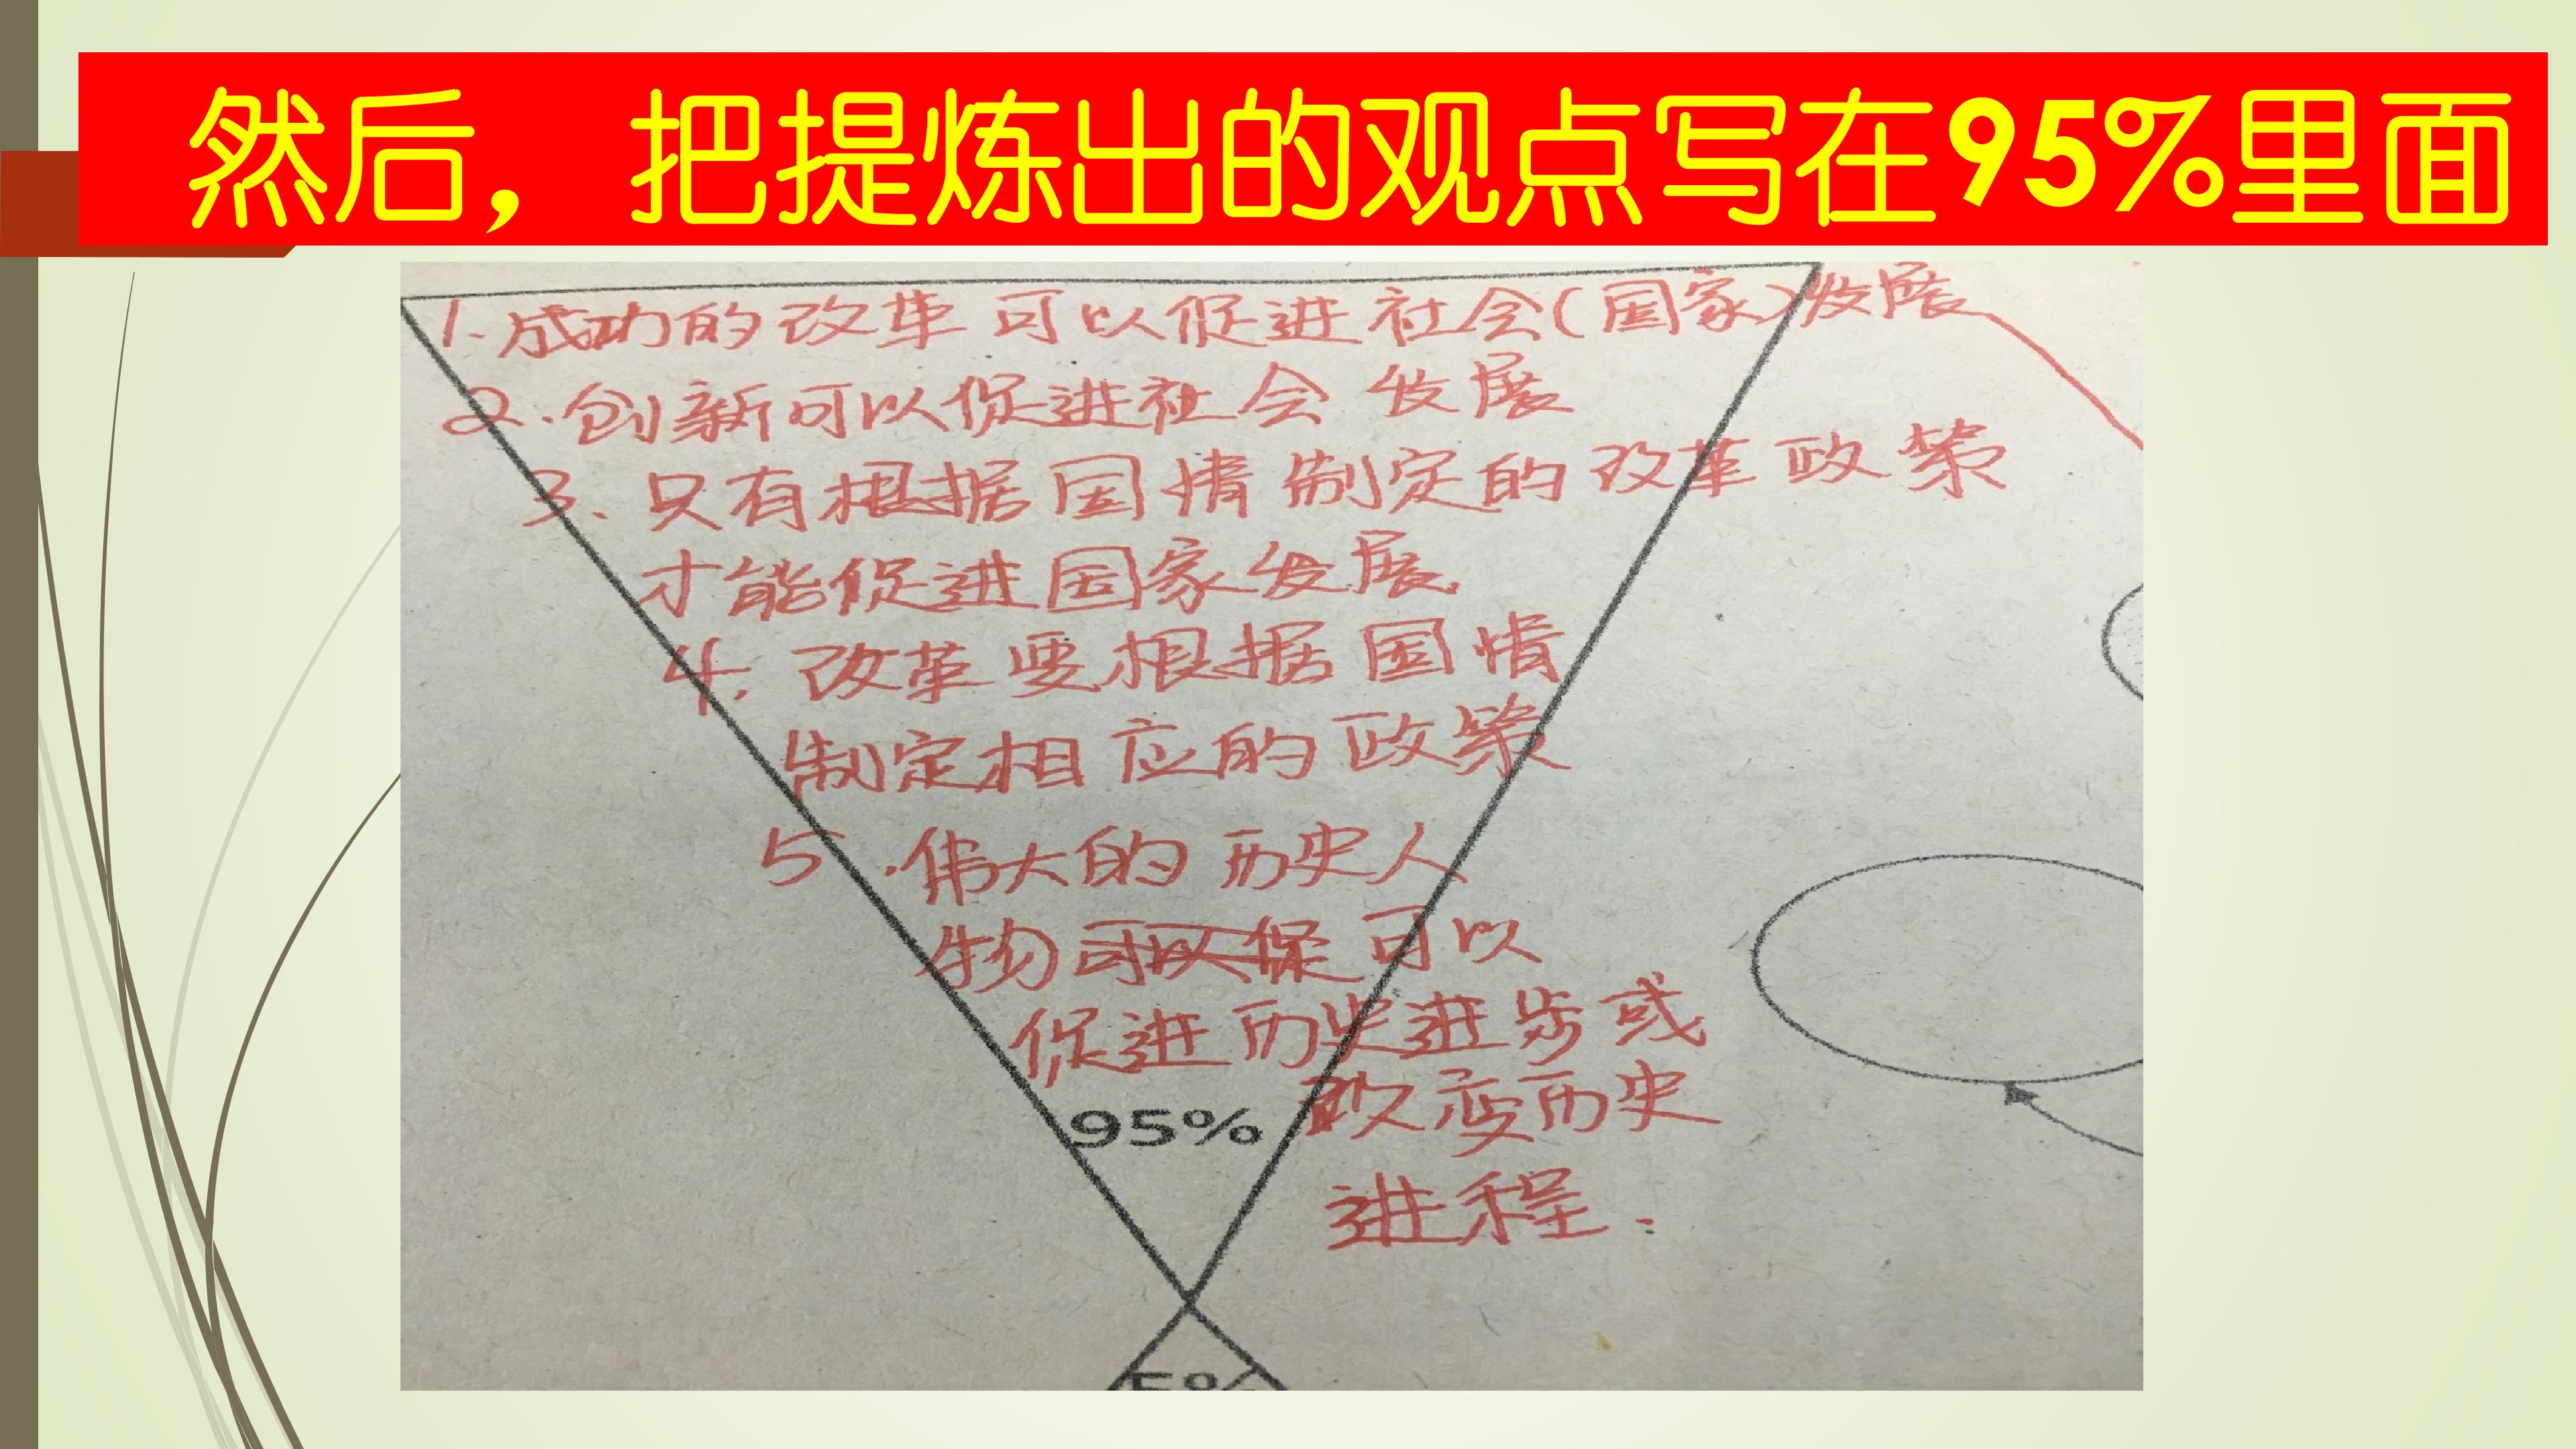 然后，把提炼出的观点写在95%里面
1.成功的改革可以促进社会(国家)发展
2.创新可以促进社会发展
3、只有根据国情制定的改革政策
才能促进国家发展.
4.改革要根据国情
制定相应的政策
5.伟大的历史人
物可以保可以
促进历史进步或
改变历史
95%
进程.
5%